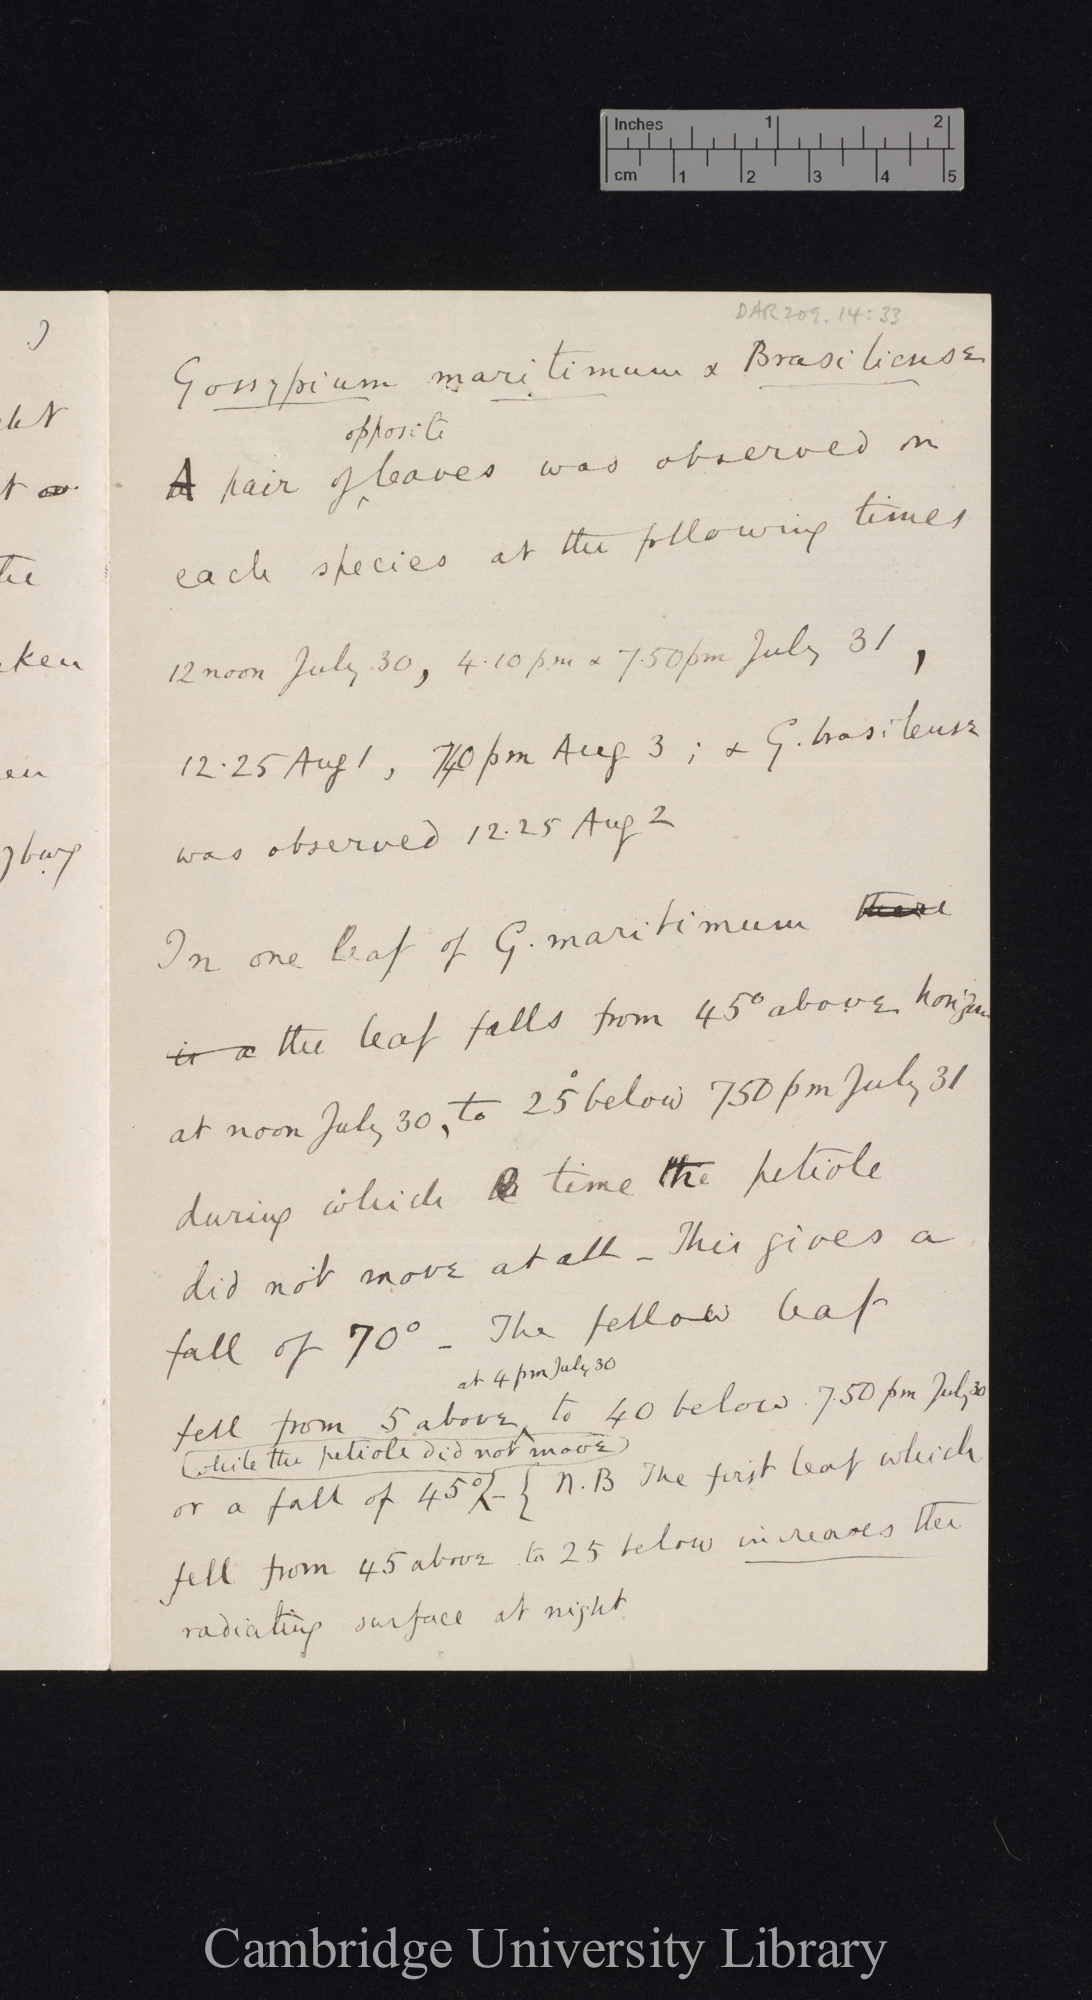 Inches 1 2
cm 1 2 3 4 5
DAR 209. 14:33
Gossypium maritimum & Brasiliense
opposite
A pair of leaves was observed on
each species at the following times
12 noon July 30, 4.10 pm & 7.50 pm July 31,
12.25 Aug 1, 7.40 pm Aug 3; & G. brasilense
was observed 12.25 Aug 2
In one leaf of G. maritimum there
is a the leaf falls from 45° above horizon
at noon July 30, to 25° below 750 pm July 31
during which time the petiole
did not move at all – This gives a
fall of 70° – The fellow leaf
at 4 pm July 30
fell from 5 above to 40 below 7.50 pm July 30
(while the petiole did not move)
or a fall of 45° – { N.B The first leaf which
fell from 45 above to 25 below increases the
radiating surface at night
ken
Cambridge University Library